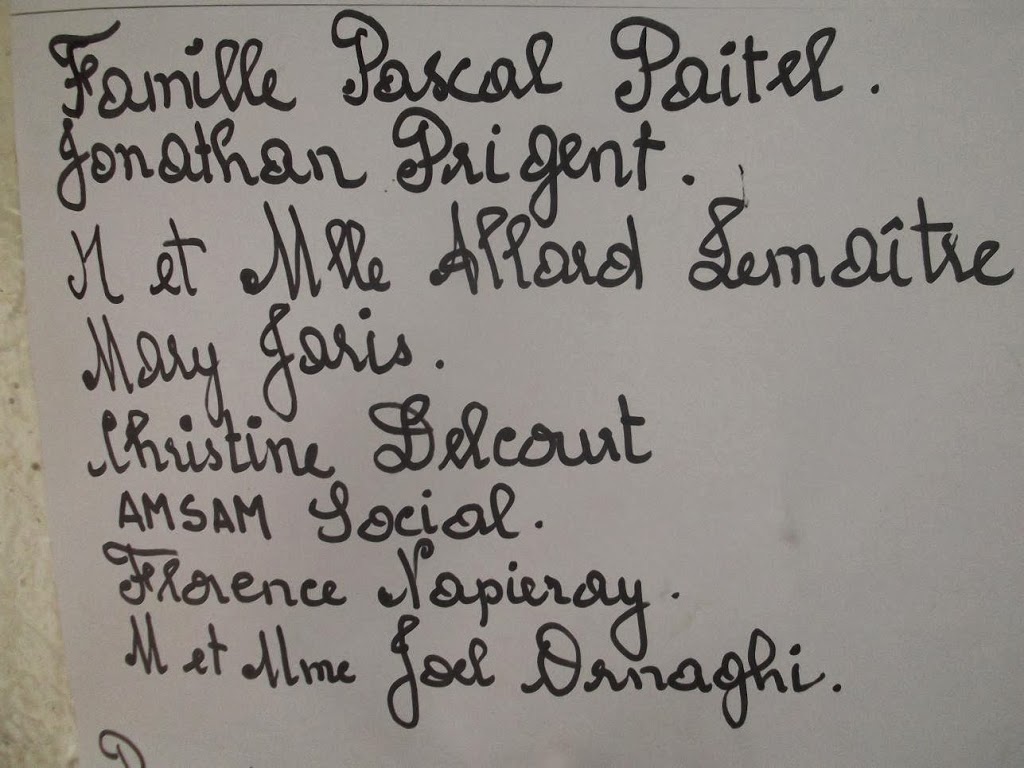 Famille Pascal Paitel.
Jonathan Prigent.
M et Mlle Allard Lemaître
Mary Joris.
Christine Delcourt
AMSAM Social.
Florence Napieray.
M et Mme Joel Ornaghi.